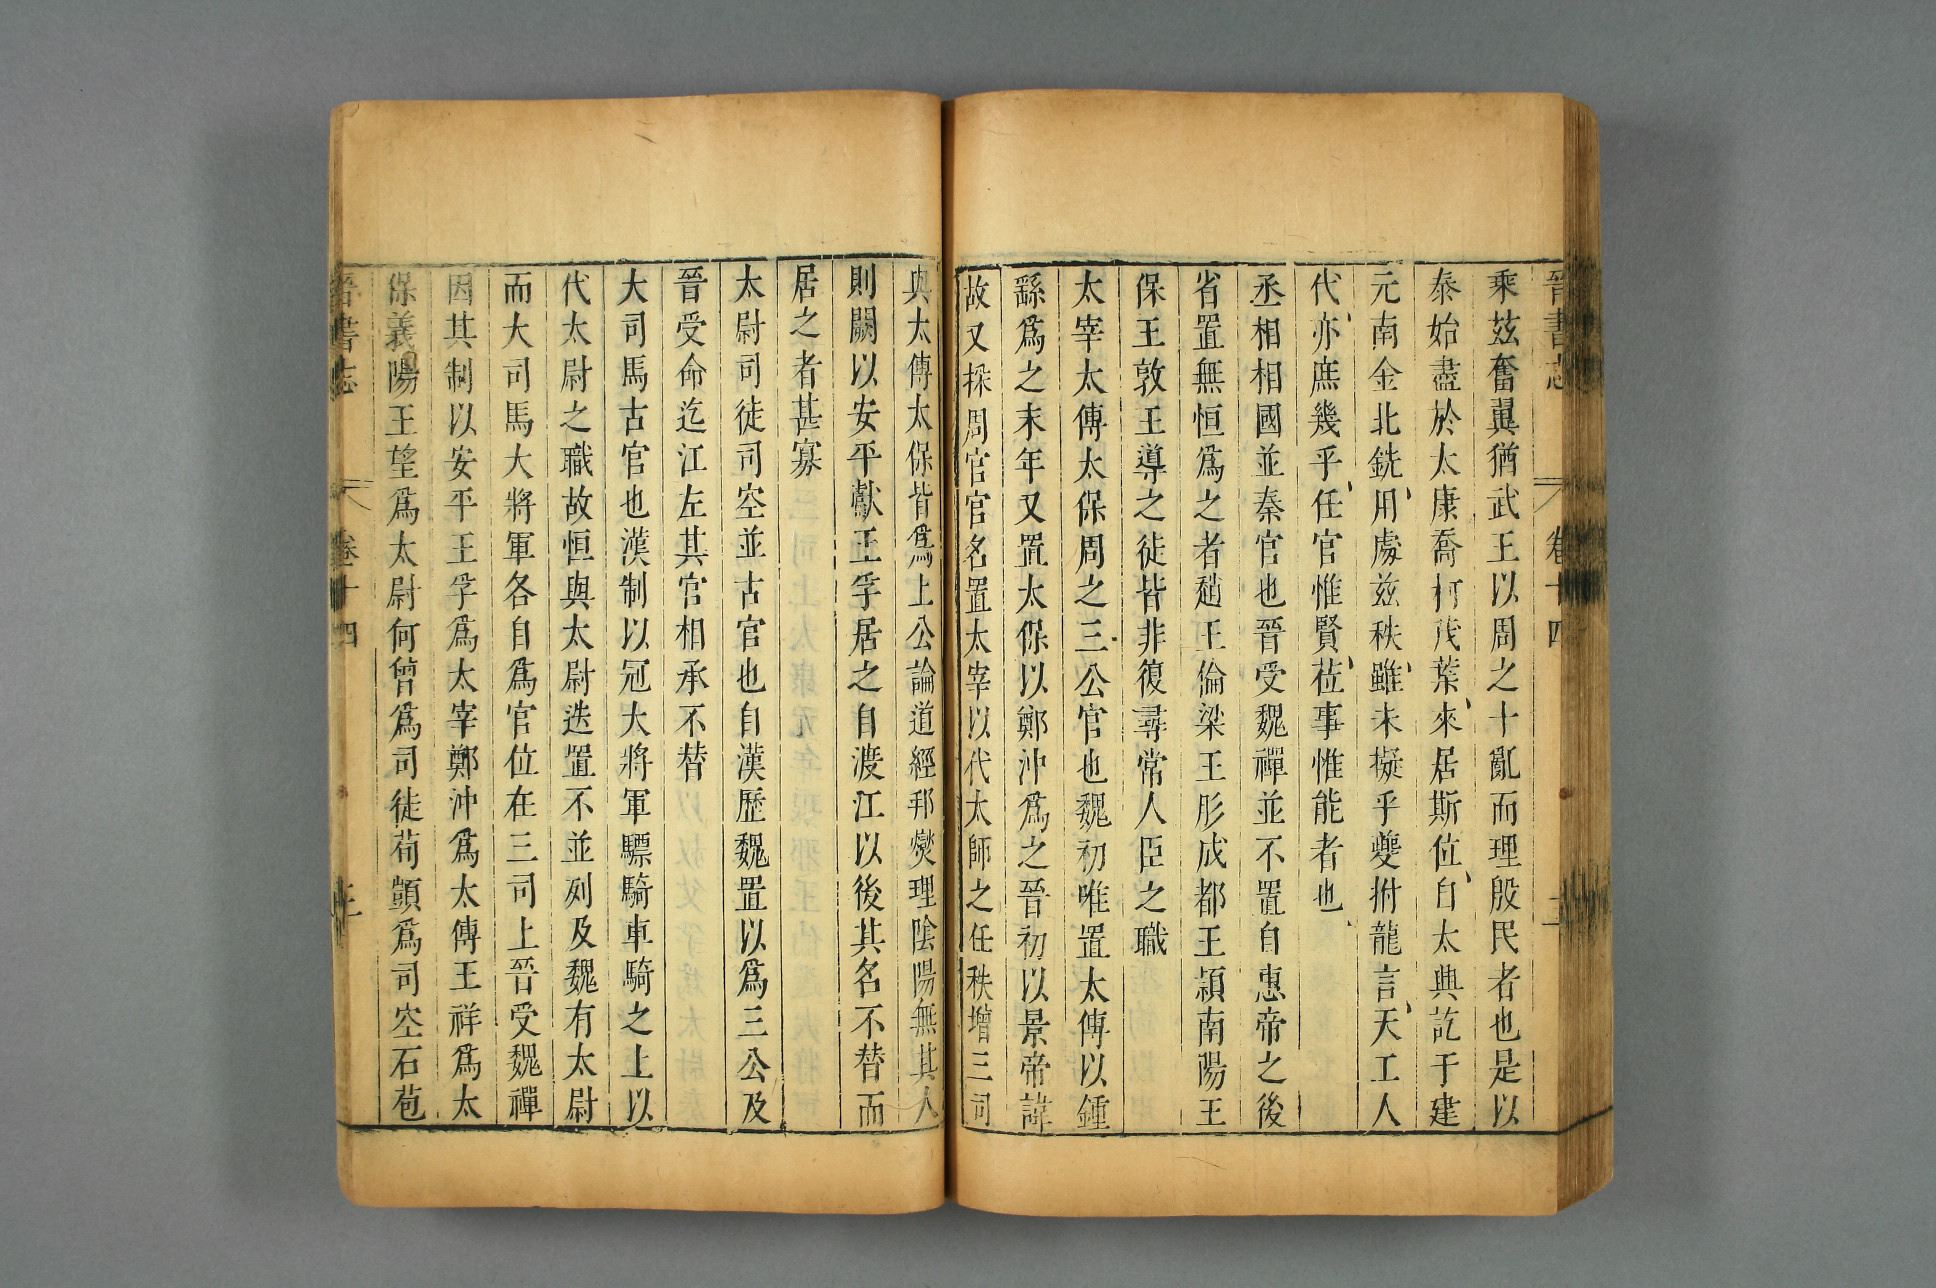 晉書志 卷十四 二
乘茲奮翼猶武王以周之十亂而理殷民者也是以
泰始盡於太康喬柯茂葉來居斯位自太興訖于建
元南金北銑用處茲秩雖未擬乎夔拊龍言天工人
代亦庶幾乎任官惟賢莅事惟能者也
丞相相國並秦官也晉受魏禪並不置自惠帝之後
省置無恒爲之者趙王倫梁王肜成都王潁南陽王
保王敦王導之徒皆非復尋常人臣之職
太宰太傅太保周之三公官也魏初唯置太傅以鍾
繇爲之末年又置太保以鄭沖爲之晉初以景帝諱
故又採周官官名置太宰以代太師之任秩增三司
與太傅太保皆爲上公論道經邦燮理陰陽無其人
則闕以安平獻王孚居之自渡江以後其名不替而
居之者甚寡
太尉司徒司空並古官也自漢歷魏置以爲三公及
晉受命迄江左其官相承不替
大司馬古官也漢制以冠大將軍驃騎車騎之上以
代太尉之職故恒與太尉迭置不並列及魏有太尉
而大司馬大將軍各自爲官位在三司上晉受魏禪
因其制以安平王孚爲太宰鄭沖爲太傅王祥爲太
保義陽王望爲太尉何曾爲司徒荀顗爲司空石苞
晉書志 卷十四 三